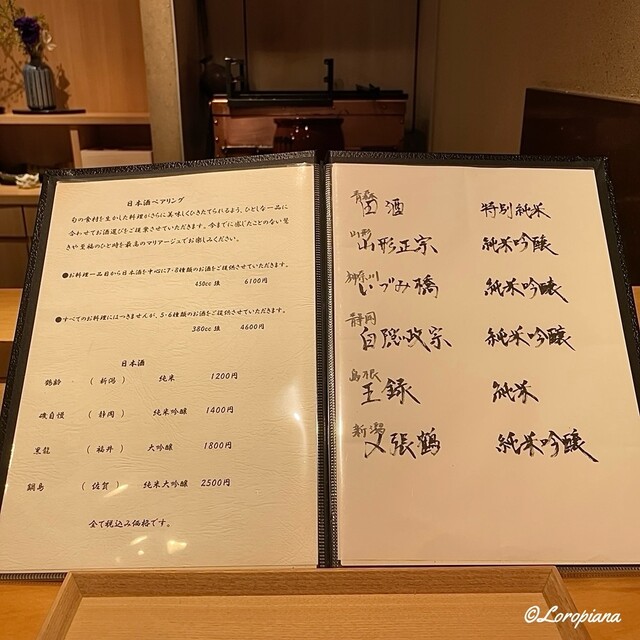 日本酒ペアリング
旬の食材を生かした料理がさらに美味しくひきたてられるよう、ひとしな一品に
合わせてお酒選びをご提案させていただきます。今までに感じたことのない驚
きや至福のひと時を最高のマリアージュでお楽しみください。
●お料理一品目から日本酒を中心に7・8種類のお酒をご提供させていただきます。
450cc 強 6100円
●すべてのお料理にはつきませんが、5・6種類のお酒をご提供させていただきます。
380cc 強 4600円
日本酒
鶴齢 ( 新潟 ) 純米 1200円
磯自慢 ( 静岡 ) 純米吟醸 1400円
黒龍 ( 福井 ) 大吟醸 1800円
鍋島 ( 佐賀 ) 純米大吟醸 2500円
全て税込み価格です。
青森
田酒 特別純米
山形
山形正宗 純米吟醸
神奈川
いづみ橋 純米吟醸
静岡
白隠政宗 純米吟醸
島根
王録 純米
新潟
〆張鶴 純米吟醸
©Loropiana